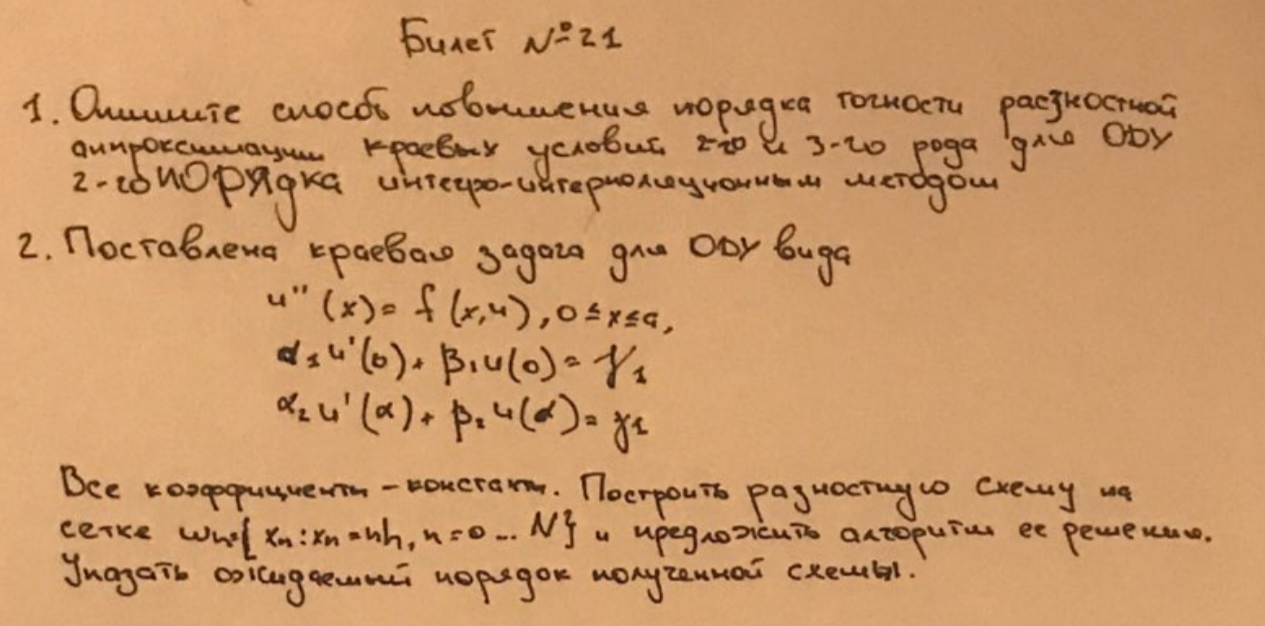 Билет №21
1. Опишите способ повышения порядка точности разностной
аппроксимации краевых условий 2-го и 3-го рода для ОДУ
2-го порядка интегро-интерполяционным методом
2. Поставлена краевая задача для ОДУ вида
u''(x) = f(x,u), 0≤x≤a,
α₁u'(0) + β₁u(0) = γ₁
α₂u'(α) + β₂u(α) = γ₁
Все коэффициенты - константы. Построить разностную схему на
сетке ωₙ={xₙ: xₙ=nh, n=0...N} и предложить алгоритм ее решения.
Указать ожидаемый порядок полученной схемы.